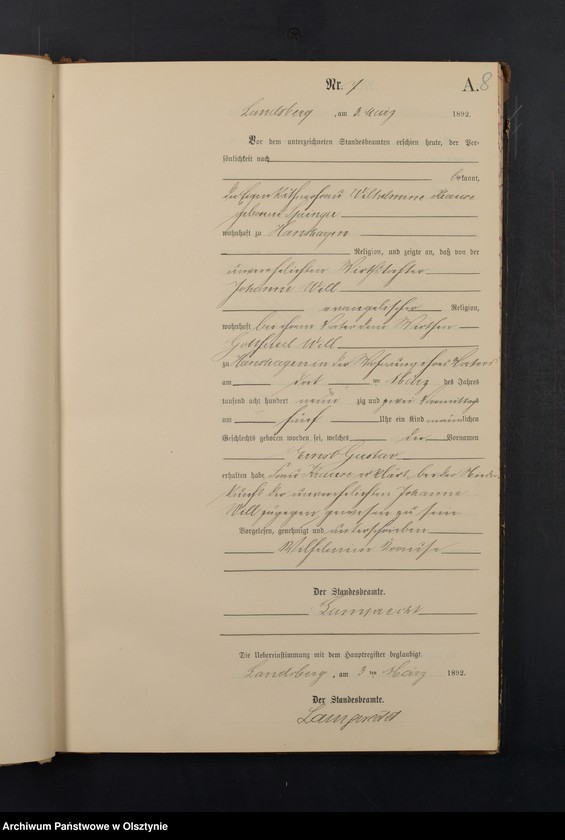 Nr. 7
A. 8
Landsberg, am 3. März 1892.
Vor dem unterzeichneten Standesbeamten erschien heute, der Per-
sönlichkeit nach
bekannt,
die Eigenkäthnerfrau Wilhelmine Krause
geborene
wohnhaft zu Hanshagen
Religion, und zeigte an, daß von der
unverehelichten Wirthstochter
Johanne Well
evangelischer Religion,
wohnhaft bei ihrem Vater dem Wirthen
Gottfried Well
zu Hanshagen in der Wohnung ihres Vaters
am März des Jahres
tausend acht hundert neun zig und zwei Vormittags
um fünf Uhr ein Kind männlichen
Geschlechts geboren worden sei, welches die Vornamen
Ernst Gustav
erhalten habe. Frau Krause erklärt, bei der Nieder-
kunft der unverehelichten Johanne
Well zugegen gewesen zu sein
Vorgelesen, genehmigt und unterschrieben
Wilhelmine Krause
Der Standesbeamte.
Die Uebereinstimmung mit dem Hauptregister beglaubigt.
Landsberg, am 3ten März 1892.
Der Standesbeamte.
Archiwum Państwowe w Olsztynie